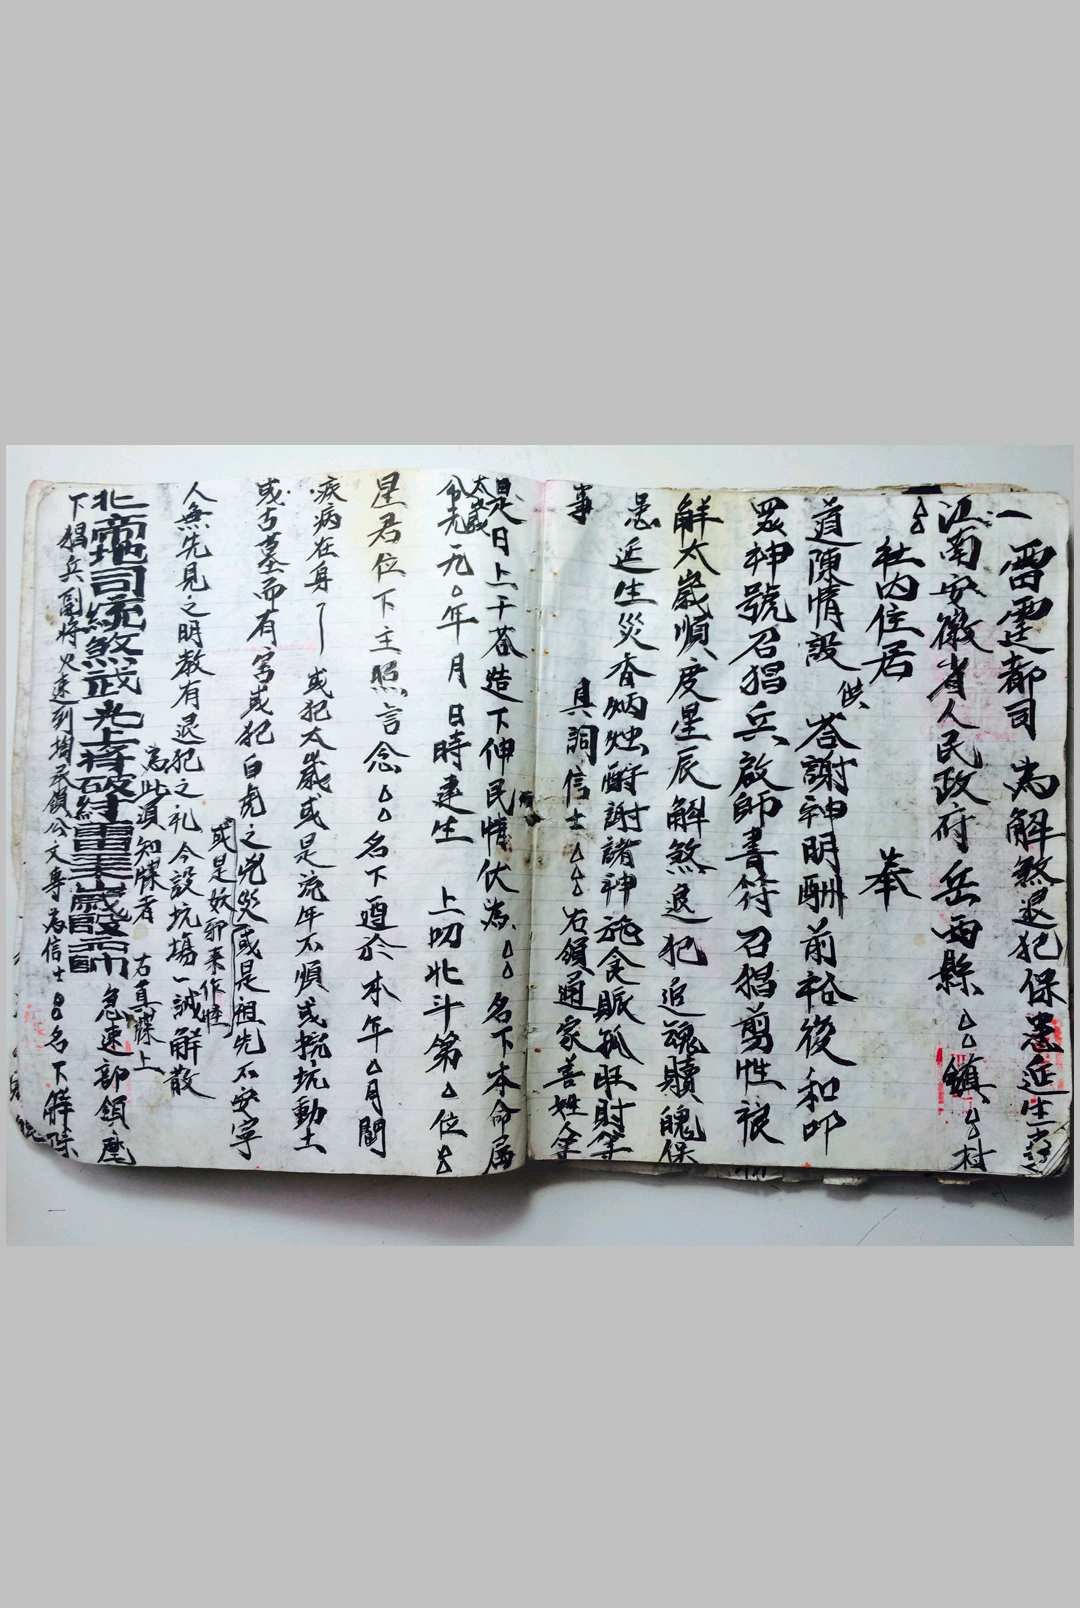 一雷霆都司 為解煞退犯保患延生
江南安徽省人民政府岳西縣△△鎮△△村
△△社内住居 奉
道陳情設供 荅謝神明酬前裕後和叩
眾神號召猖兵啟師書符召猖剪性禳
解太歲順度星辰解煞退犯追魂贖魄保
患延生災香炳燭酧謝諸神施食賑孤旺財等
事 具詞信士△△△右領通家善姓等
是日上干荅造下伸民情伏為△△名下本命屬
太歲
公元元△年月日時建生 上叨北斗第△位△
星君位下主照言念△△名下遵於本年△月間
疾病在身 或犯太歲或是流年不順或挖坑動土
或古墓而有害或犯白虎之兇災或是祖先不安寧
或是妖邪来作怪
人無先見之明教有退犯之礼今設坑塲一誠解散
為此須知牒者 右真牒上
北帝地司統煞武光上將破 雷王歲殷元帥 急速部領麾
下猖兵副將火速到壇承領公文專為信士△△名下解除